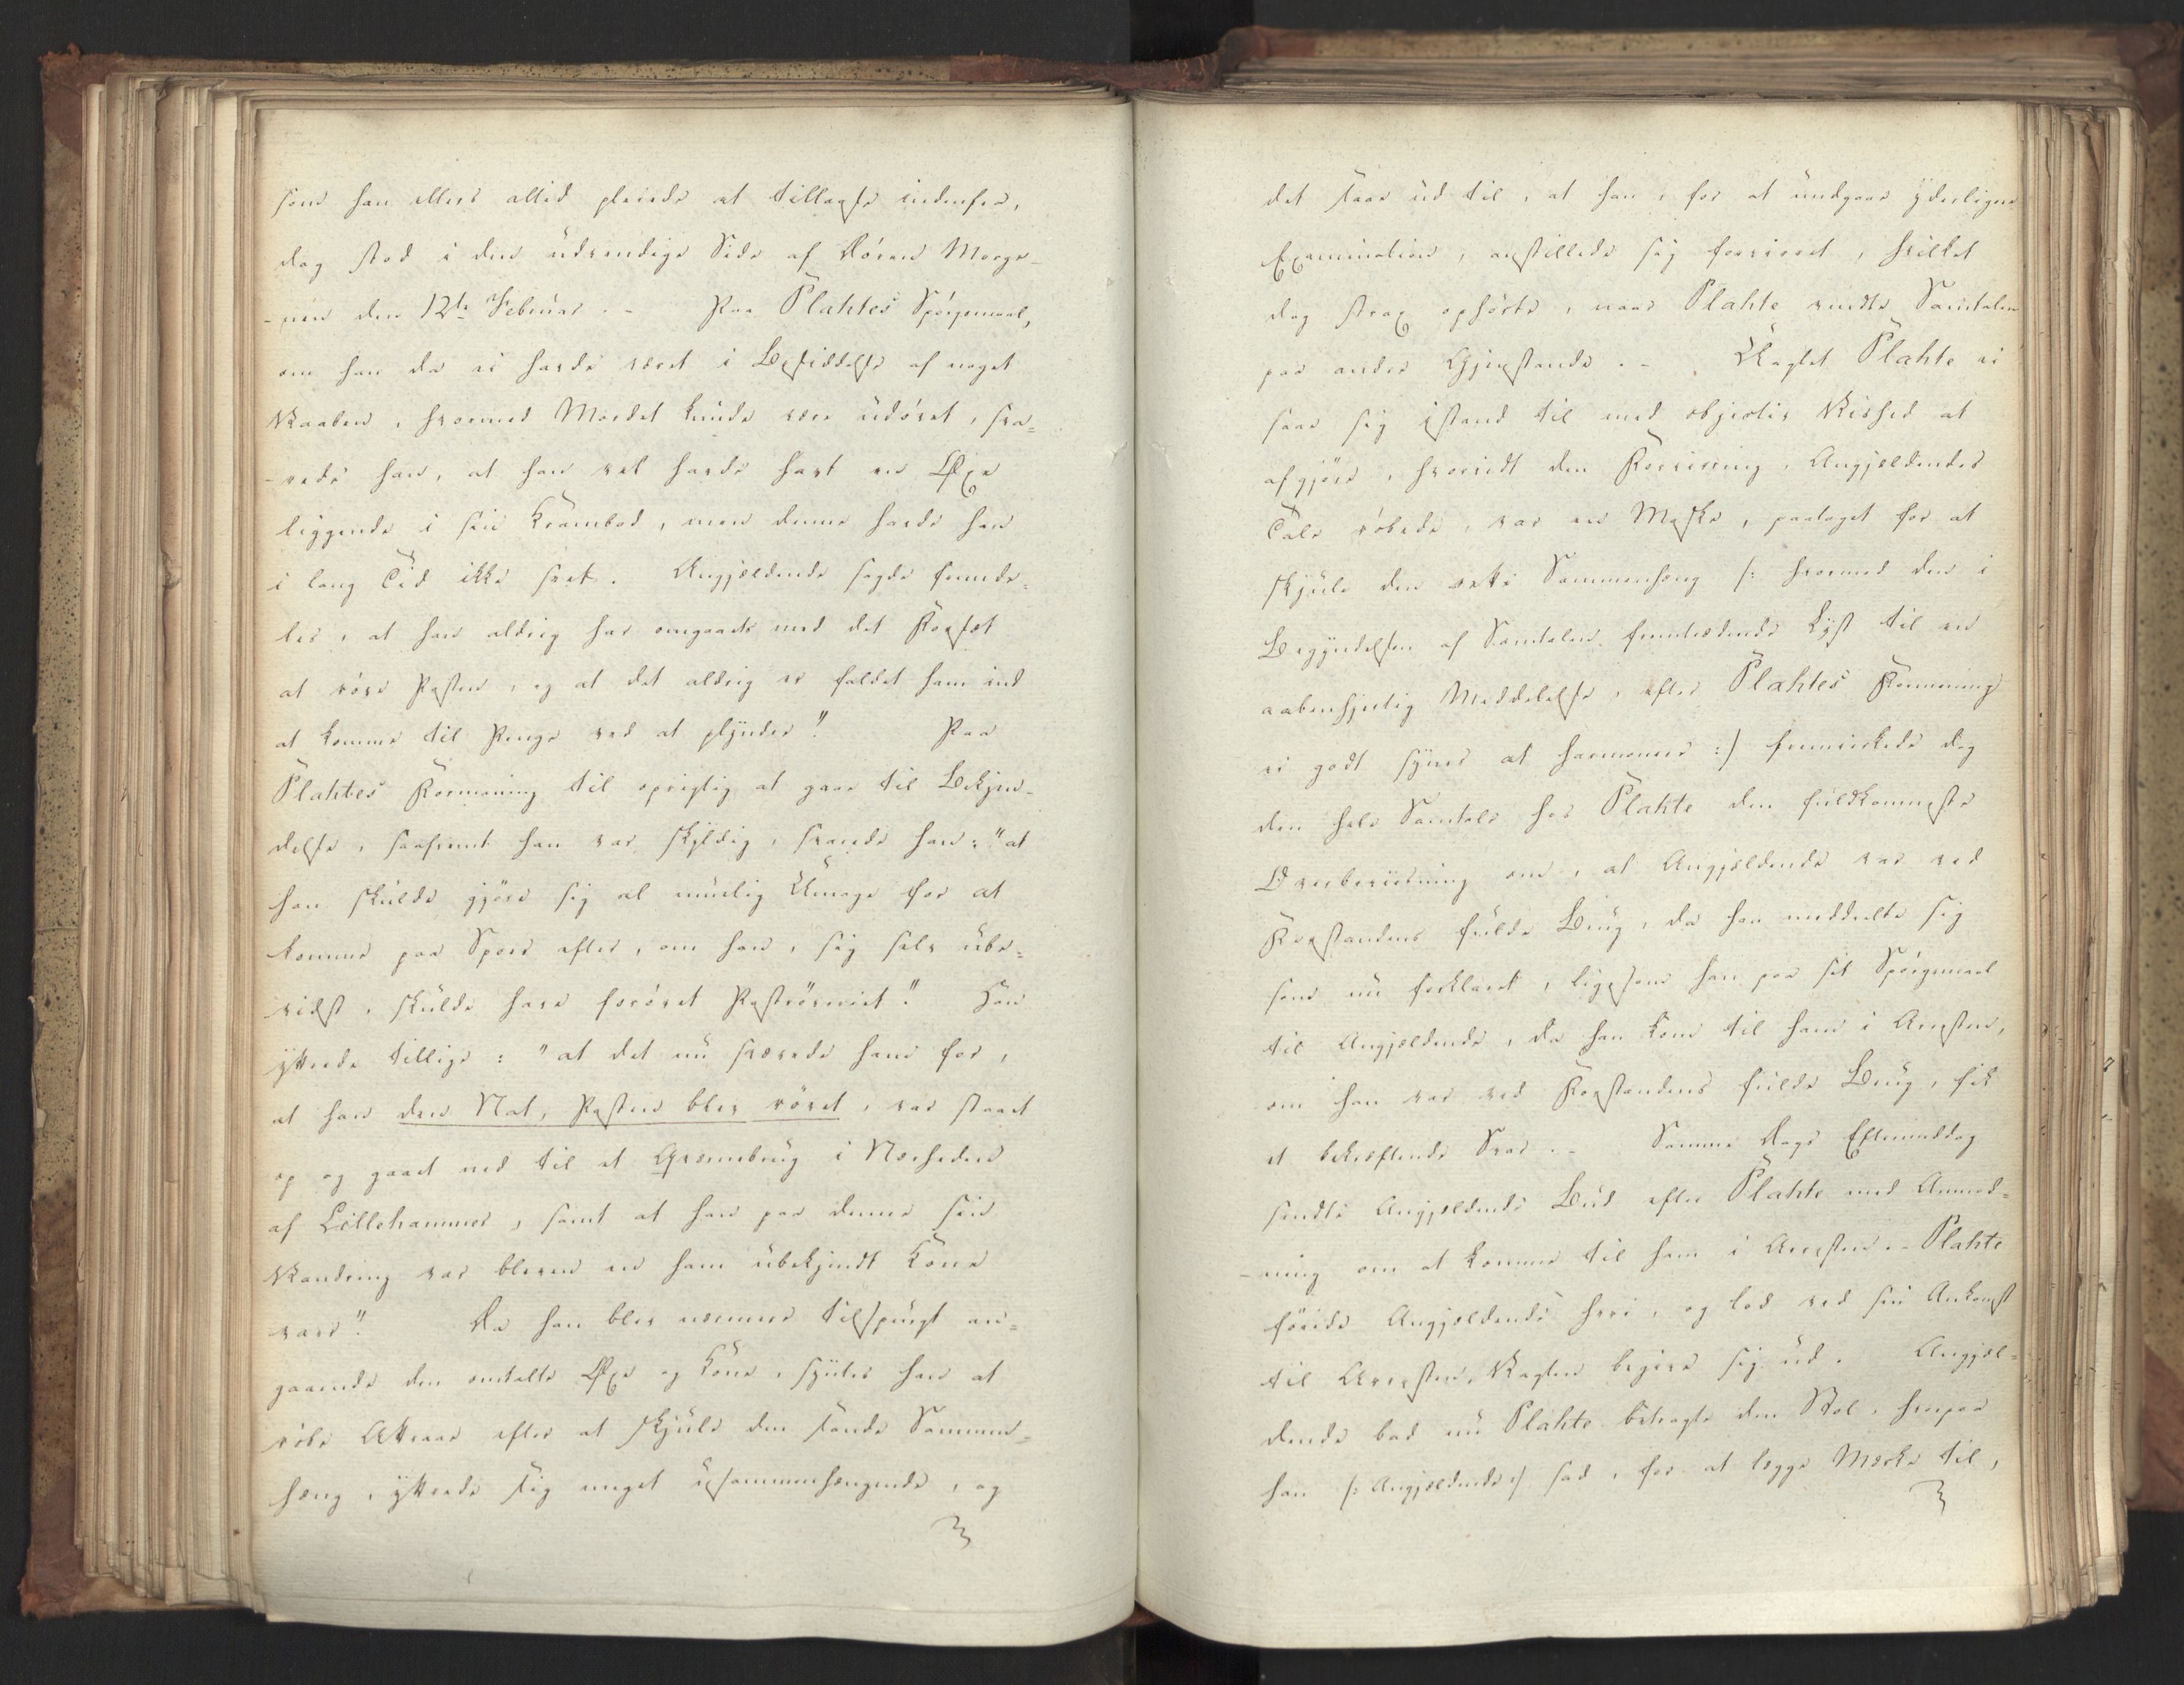 som han ellers altid pleiede at tillaase indenfra,
dog stod i den udvendige Side af Døren Morge-
-nen den 12te Februar. - Paa Plahtes Spørgsmaal,
om han da ei havde været i Besiddelse af noget
Vaaben, hvormed Mordet kunde være udøvet, sva=
-rede han, at han vel havde havt en Øxe
liggende i sin Krambod, men denne havde han
i lang Tid ikke seet. Angjældende sagde fremde=
les, at han aldrig har omgaaets med det Forsæt
at røve Posten, og at det aldrig er faldet ham ind
at komme til Penge ved at plyndre". Paa
Plahtes Formaning til oprigtig at gaae til Bekjen-
delse, saafremt han var skyldig, svarede han: "at
han skulde gjøre sig al muelig Umage for at
komme paa Spor efter, om han, sig selv ube=
vidst, skulde have forøvet Postrøveriet". Han
yttrede tillige: "at det nu svævede ham for,
at han den Nat, Posten blev røvet, var staaet
op og gaaet ned til et Garverbrug i Nærheden
af Lillehammer, samt at han paa denne sin
Vandring var bleven en ham ubekjendt Kone
vaer". Da han blev nærmere tilspurgt an=
gaaende den omtalte Øxe og Kone, syntes han at
røbe Attraae efter at skjule den sande Sammen=
hæng, yttrede sig meget usammenhængende, og
det saae ud til, at han, for at undgaae yderligere
Examination, anstillede sig forvirret, hvilket
dog strax ophørte, naar Plahte vendte Samtalen
paa andre Gjenstande. - Uagtet Plahte ei
saae sig istand til med objectiv Vished at
afgjøre, hvorvidt den Forvirring, Angjældendes
Tale røbede, var en Maske, paataget for at
skjule den rette Sammenhæng /: hvormed den i
Begyndelsen af Samtalen fremtrædende Lyst til en
aabenhjertig Meddelelse, efter Plahtes Formening
ei godt synes at harmonere :/ fremvirkede dog
den hele Samtale hos Plahte den fuldkomneste
Overbeviisning om, at Angjældende var ved
Forstandens fulde Brug, da han meddeelte sig
som nu forklaret, ligesom han paa sit Spørgsmaal
til Angjældende, da han kom til ham i Arresten,
om han var ved Forstandens fulde Brug, fik
et bekræftende Svar. - Samme Dags Eftermiddag
sendte Angjældende Bud efter Plahte med Anmod=
-ning om at komme til ham i Arresten. - Plahte
føiede Angjældende heri, og lod ved sin Ankomst
til Arresten, Vagten begive sig ud. Angjæl=
dende bad nu Plahte betragte den Stol, hvorpaa
han /: Angjældende :/ sad, for at lægge Mærke til,